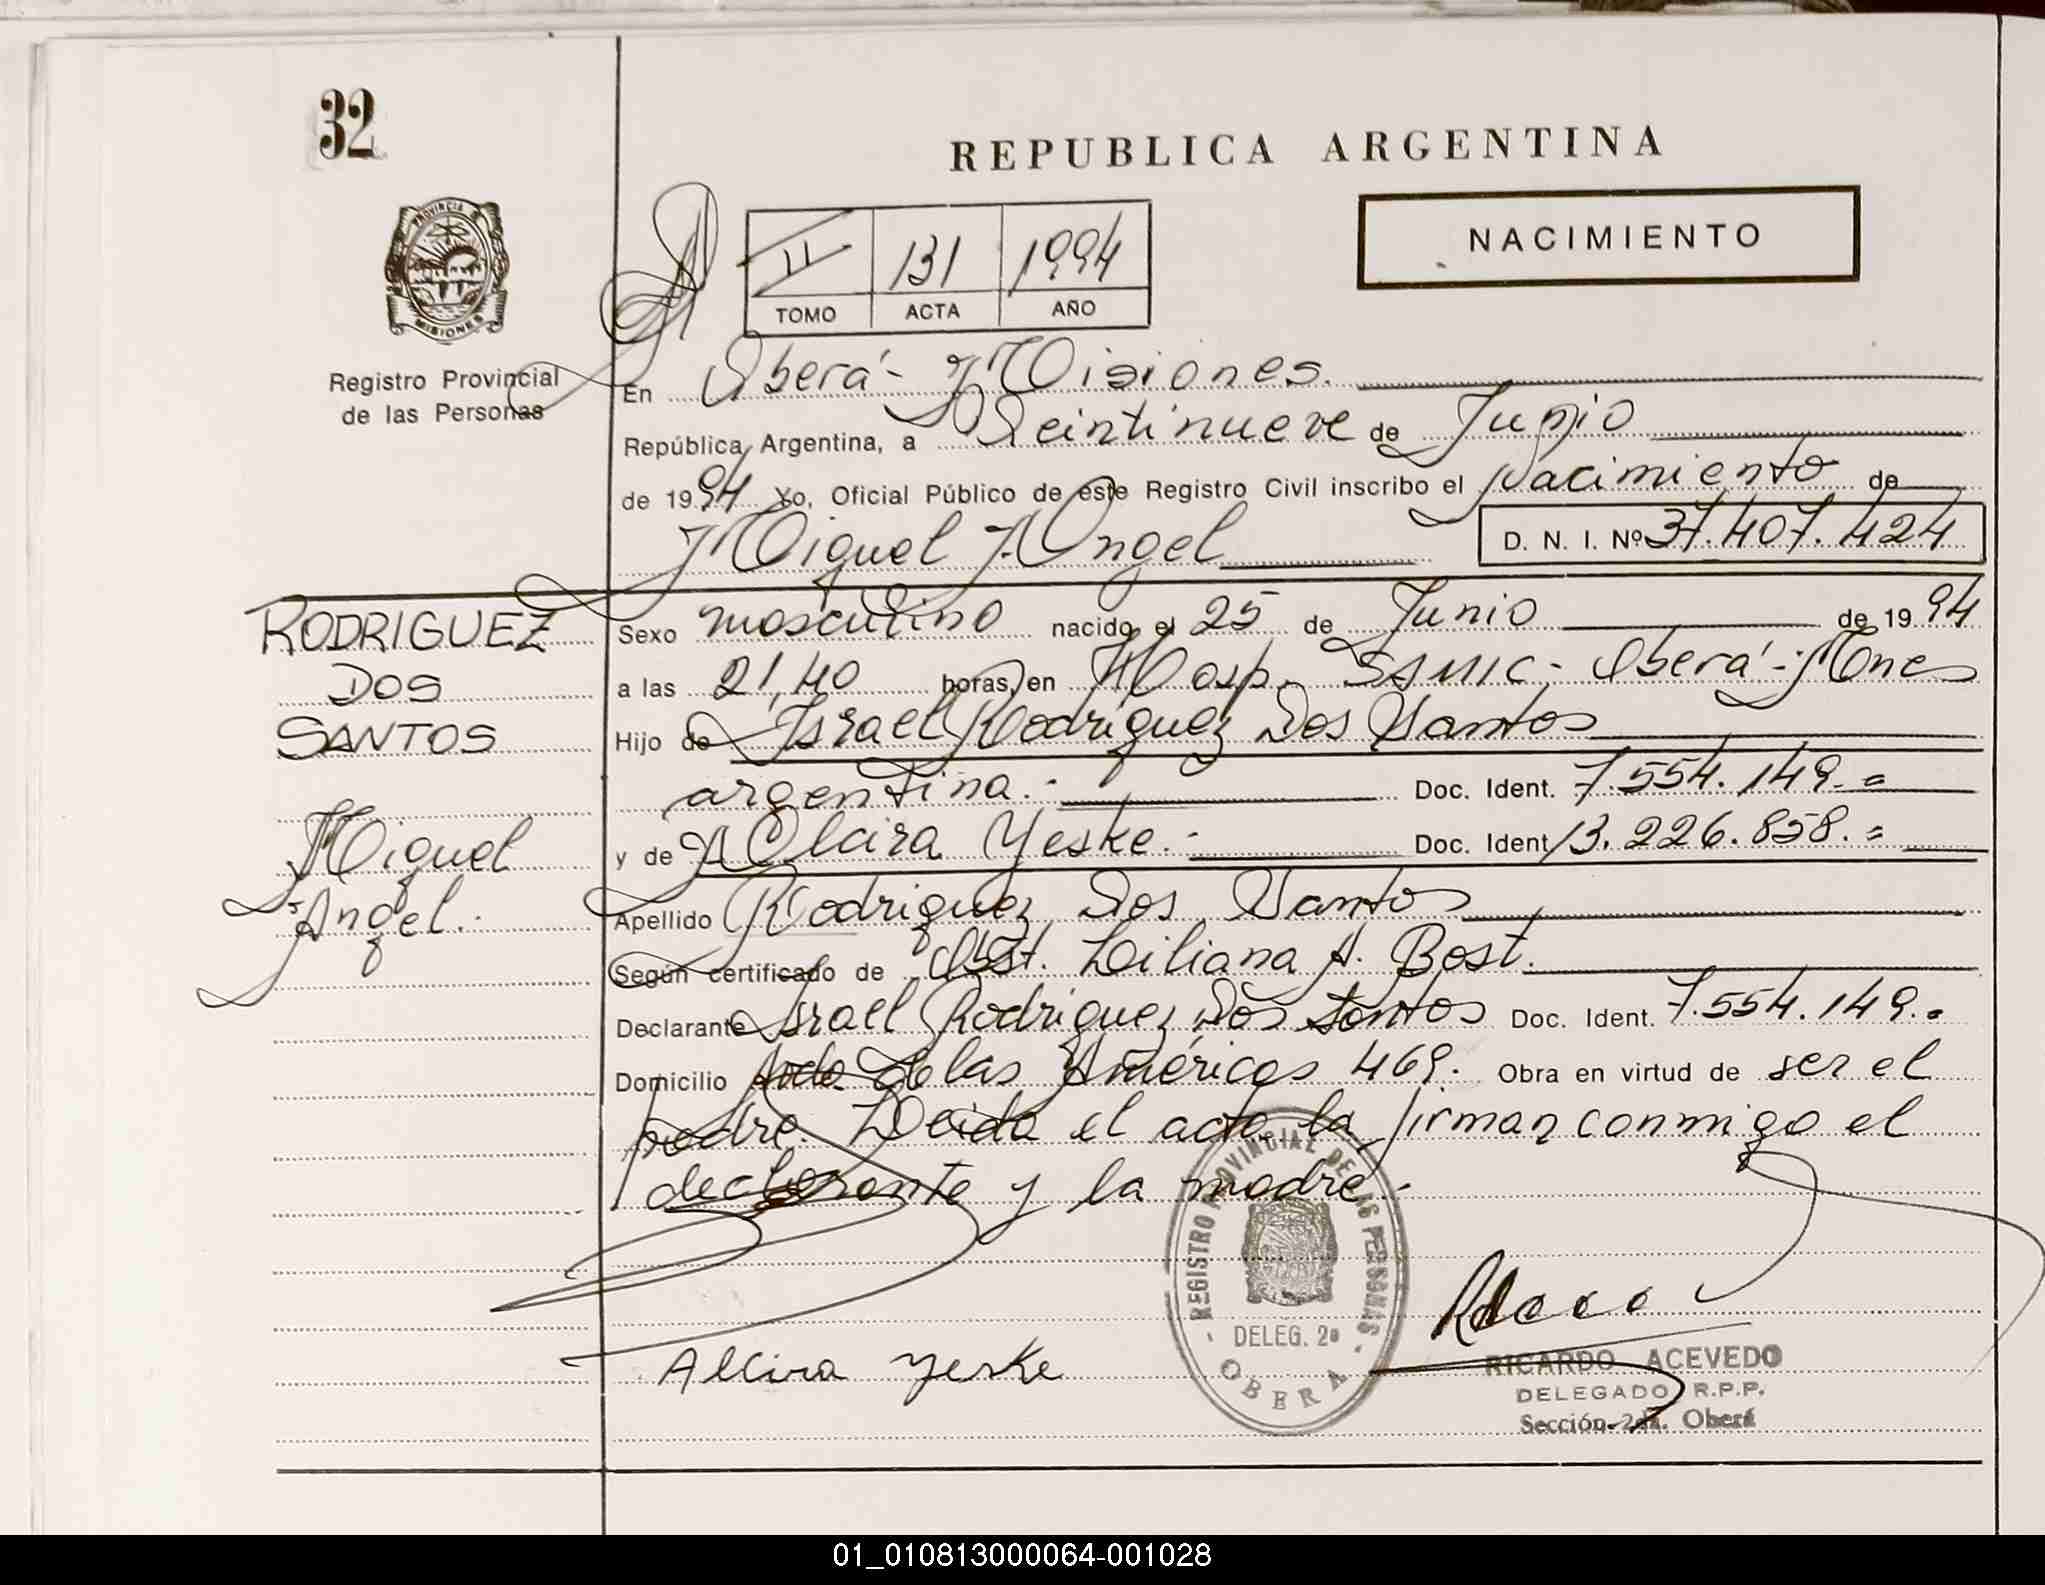 32
REPUBLICA ARGENTINA
NACIMIENTO
II 131 1994
TOMO ACTA AÑO
PROVINCIA
MISIONES
Registro Provincial
de las Personas
En Oberá - Misiones.
República Argentina, a Veintinueve de Junio
de 1994 Yo, Oficial Público de este Registro Civil inscribo el Nacimiento de
Miguel Angel D. N. I. Nº 37.407.424
RODRIGUEZ
DOS
SANTOS
Miguel
Angel.
Sexo masculino nacido el 25 de Junio de 1994
a las 21,40 horas, en Hosp. SAMIC - Oberá - Mnes
Hijo de Israel Rodriguez Dos Santos
argentina.- Doc. Ident. 7.554.149.=
y de Alcira Yeske.- Doc. Ident 13.226.858.=
Apellido Rodriguez Dos Santos
Según certificado de Obst. Liliana A. Bost.
Declarante Israel Rodriguez Dos Santos Doc. Ident. 7.554.149.=
Domicilio Avda. de las Américas 469. Obra en virtud de ser el
padre. Leida el acta la firman conmigo el
declarante y la madre.-
REGISTRO PROVINCIAL DE LAS PERSONAS
DELEG. 2a
OBERA
Alcira Yeske
RICARDO ACEVEDO
DELEGADO R.P.P.
Sección 2da. Oberá
01_010813000064-001028